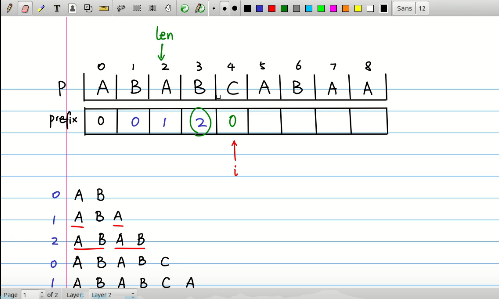 Sans 12
len
0 1 2 3 4 5 6 7 8
P A B A B C A B A A
prefix 0 0 1 2 0
i
0 A B
1 A B A
2 A B A B
0 A B A B C
1 A B A B C A
Page 1 of 2 Layer: Layer 2